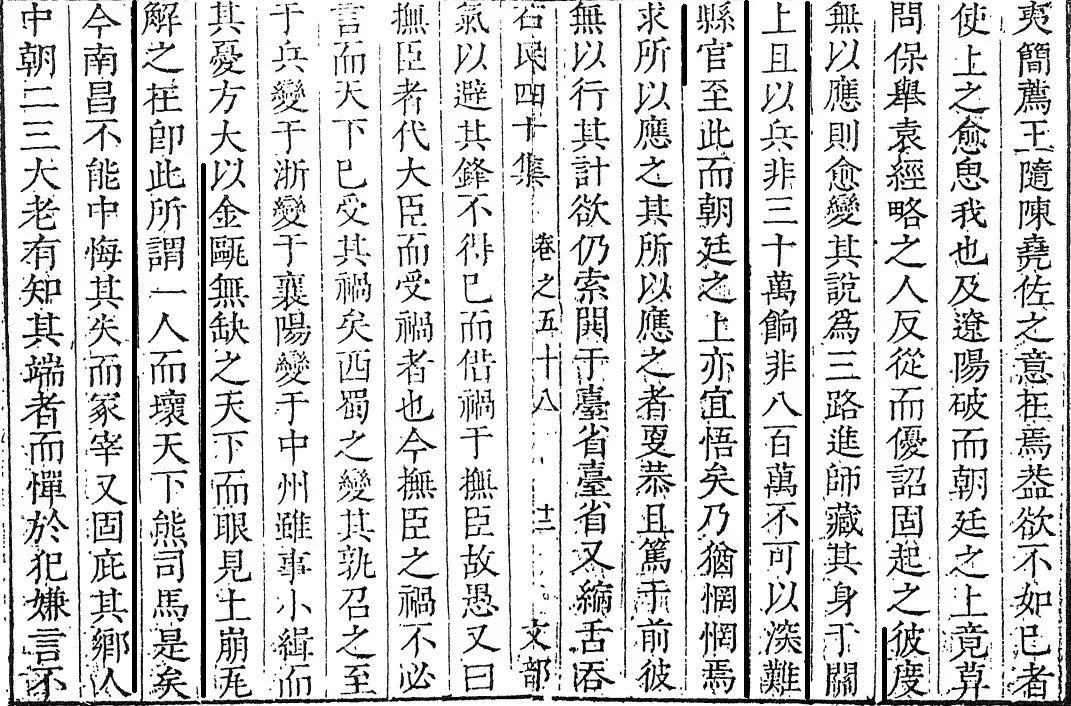 夷簡薦王隨陳堯佐之意在焉葢欲不如已者
使上之愈思我也及遼陽破而朝廷之上竟莫
問保舉袁經略之人反從而優詔固起之彼度
無以應則愈變其說爲三路進師藏其身于關
上且以兵非三十萬餉非八百萬不可以深難
縣官至此而朝廷之上亦宜悟矣乃猶惘惘焉
求所以應之其所以應之者更恭且篤于前彼
無以行其計欲仍索閧于臺省臺省又縮舌吞
石民四十集 卷之五十八 十二 文部
氣以避其鋒不得已而偕禍于撫臣故愚又曰
撫臣者代大臣而受禍者也今撫臣之禍不必
言而天下已受其禍矣西蜀之變其孰召之至
于兵變于浙變于襄陽變于中州雖事小緝而
其憂方大以金甌無缺之天下而眼見土崩瓦
解之在卽此所謂一人而壞天下熊司馬是矣
今南昌不能中悔其失而冢宰又固庇其鄉人
中朝二三大老有知其端者而憚於犯嫌言不